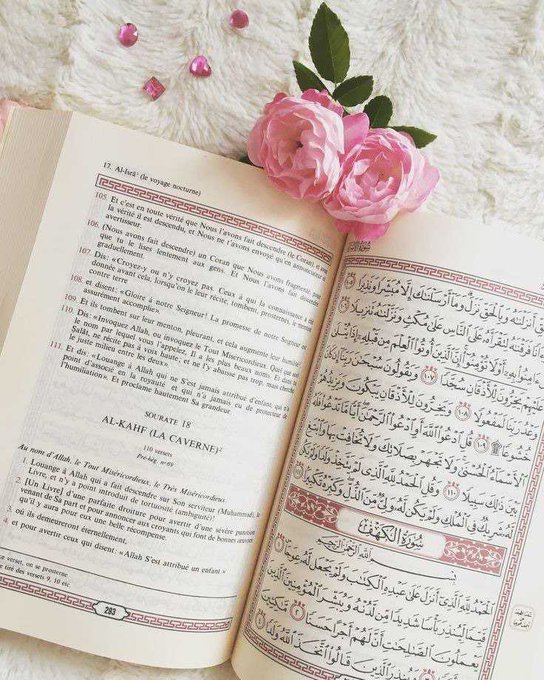 17. Al-Isrâ' (le voyage nocturne)
105. Et c'est en toute vérité que Nous l'avons fait descendre (le Coran), et avec
la vérité il est descendu, et Nous ne t'avons envoyé qu'en annonciateur et
avertisseur.
106. (Nous avons fait descendre) un Coran que Nous avons fragmenté, pour
que tu le lises lentement aux gens. Et Nous l'avons fait descendre
graduellement.
107. Dis: «Croyez-y ou n'y croyez pas. Ceux à qui la connaissance a été
donnée avant cela, lorsqu'on le leur récite, tombent, prosternés, le menton
contre terre
108. et disent: «Gloire à notre Seigneur! La promesse de notre Seigneur est
assurément accomplie».
109. Et ils tombent sur leur menton, pleurant, et cela augmente leur humilité.
110. Dis: «Invoquez Allah, ou invoquez le Tout Miséricordieux. Quel que soit
le nom par lequel vous l'appelez, Il a les plus beaux noms. Et dans ta
Salât, ne récite pas à voix haute; et ne l'y abaisse pas trop, mais cherche
le juste milieu entre les deux».
111. Et dis: «Louange à Allah qui ne S'est jamais attribué d'enfant, qui n'a
point d'associé en la royauté et qui n'a jamais eu de protecteur de
l'humiliation». Et proclame hautement Sa grandeur.
SOURATE 18
AL-KAHF (LA CAVERNE)²
110 versets
Pré-hég. n° 69
Au nom d'Allah, le Tout Miséricordieux, le Très Miséricordieux.
1. Louange à Allah qui a fait descendre sur Son serviteur (Muhammad), le
Livre, et n'y a point introduit de tortuosité (ambiguïté)!
2. [Un Livre] d'une parfaite droiture pour avertir d'une sévère punition
venant de Sa part et pour annoncer aux croyants qui font de bonnes œuvres
qu'il y aura pour eux une belle récompense.
3. où ils demeureront éternellement.
4. et pour avertir ceux qui disent: «Allah S'est attribué un enfant»
verset, on se prosterne
tiré des versets 9, 10 etc.
293
وَبِالْحَقِّ أَنزَلْنَاهُ وَبِالْحَقِّ نَزَلَ وَمَا أَرْسَلْنَاكَ إِلَّا مُبَشِّرًا وَنَذِيرًا ١٠٥
وَقُرْآنًا فَرَقْنَاهُ لِتَقْرَأَهُ عَلَى النَّاسِ عَلَىٰ مُكْثٍ وَنَزَّلْنَاهُ تَنزِيلًا ١٠٦
قُلْ آمِنُوا بِهِ أَوْ لَا تُؤْمِنُوا إِنَّ الَّذِينَ أُوتُوا الْعِلْمَ مِن قَبْلِهِ إِذَا يُتْلَىٰ
عَلَيْهِمْ يَخِرُّونَ لِلْأَذْقَانِ سُجَّدًا ١٠٧ وَيَقُولُونَ سُبْحَانَ رَبِّنَا إِن كَانَ
وَعْدُ رَبِّنَا لَمَفْعُولًا ١٠٨ وَيَخِرُّونَ لِلْأَذْقَانِ يَبْكُونَ وَيَزِيدُهُمْ
خُشُوعًا ١٠٩ قُلِ ادْعُوا اللَّهَ أَوِ ادْعُوا الرَّحْمَٰنَ أَيًّا مَّا تَدْعُوا فَلَهُ
الْأَسْمَاءُ الْحُسْنَىٰ وَلَا تَجْهَرْ بِصَلَاتِكَ وَلَا تُخَافِتْ بِهَا وَابْتَغِ
بَيْنَ ذَٰلِكَ سَبِيلًا ١١٠ وَقُلِ الْحَمْدُ لِلَّهِ الَّذِي لَمْ يَتَّخِذْ وَلَدًا وَلَمْ يَكُن
لَّهُ شَرِيكٌ فِي الْمُلْكِ وَلَمْ يَكُن لَّهُ وَلِيٌّ مِّنَ الذُّلِّ وَكَبِّرْهُ تَكْبِيرًا ١١١
سُورَةُ الْكَهْفِ
بِسْمِ اللَّهِ الرَّحْمَٰنِ الرَّحِيمِ
الْحَمْدُ لِلَّهِ الَّذِي أَنزَلَ عَلَىٰ عَبْدِهِ الْكِتَابَ وَلَمْ يَجْعَل لَّهُ عِوَجًا ١
قَيِّمًا لِّيُنذِرَ بَأْسًا شَدِيدًا مِّن لَّدُنْهُ وَيُبَشِّرَ الْمُؤْمِنِينَ الَّذِينَ
يَعْمَلُونَ الصَّالِحَاتِ أَنَّ لَهُمْ أَجْرًا حَسَنًا ٢ مَّاكِثِينَ
فِيهِ أَبَدًا ٣ وَيُنذِرَ الَّذِينَ قَالُوا اتَّخَذَ اللَّهُ وَلَدًا ٤